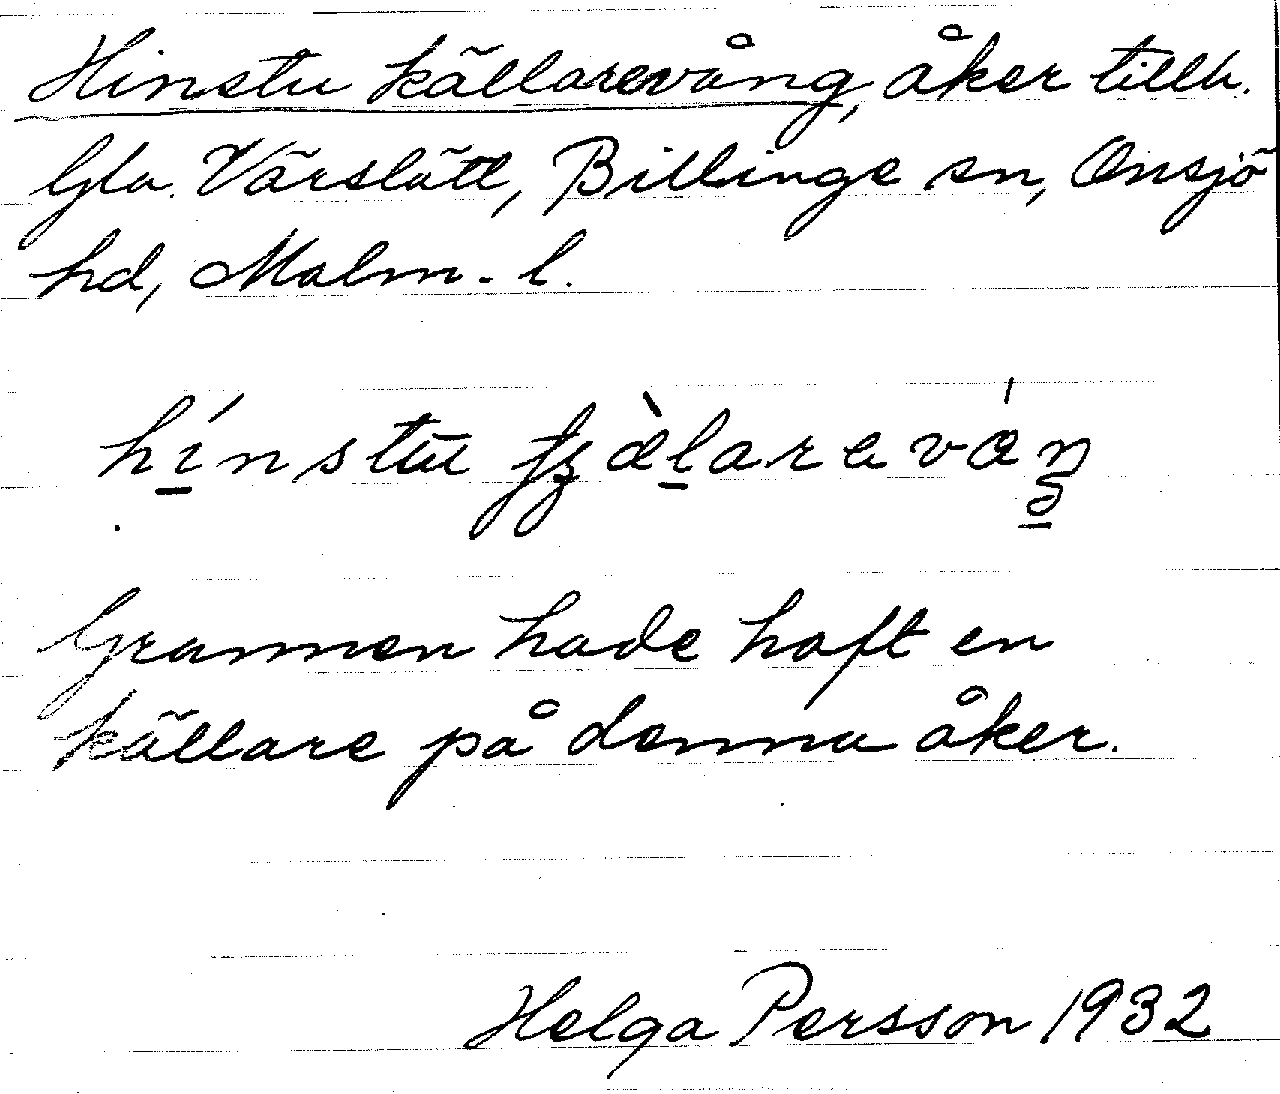 Hinstu källarevång, åker tillh.
Gla. Värslätt, Billinge sn, Onsjö
hd, Malm. l.
hínstu fʒὰlarevάŋ
Grannen hade haft en
källare på denna åker.
Helga Persson 1932